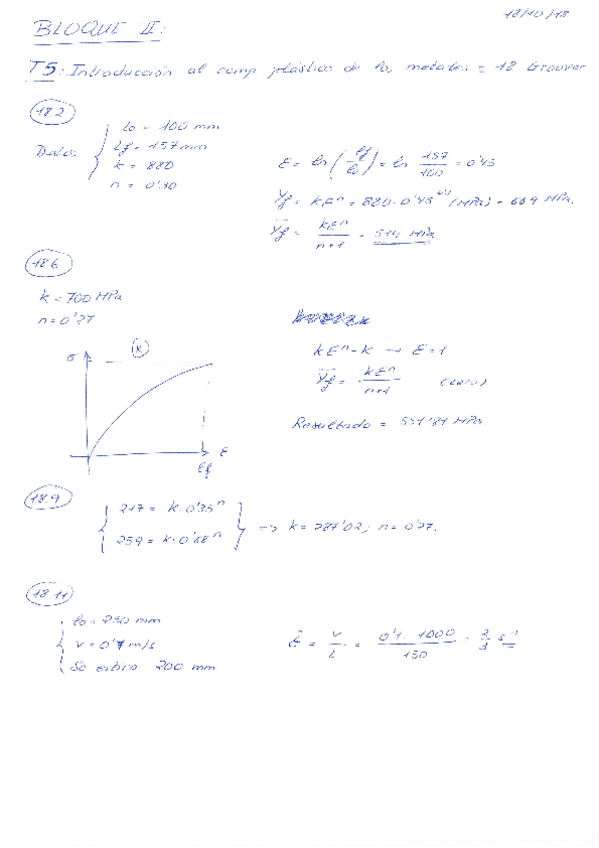 12/10/18
BLOQUE II:
T5: Introducción al comp plástico de los metales = 18 Groover
18.2
Datos:
lo = 100 mm
Lf = 157 mm
k = 880
n = 0'20
ε = ln (lf/lo) = ln 157/100 = 0'45
Yf = kεⁿ = 880 · 0'45 (MPa) = 669 MPa.
Yf = kεⁿ/n+1 = 514 MPa
18.6
k = 700 MPa
n = 0'27
σ
K
ε
εf
kεⁿ = k → ε = 1
Yf = kεⁿ/n+1
Resultado = 551'81 MPa
18.9
217 = k · 0'35ⁿ
259 = k · 0'68ⁿ
=> k = 287'02; n = 0'27.
18.11
lo = 250 mm
v = 0'1 m/s
Se estira 200 mm
ε̇ = v/L = 0'1 · 1000/150 = 2/3 s⁻¹